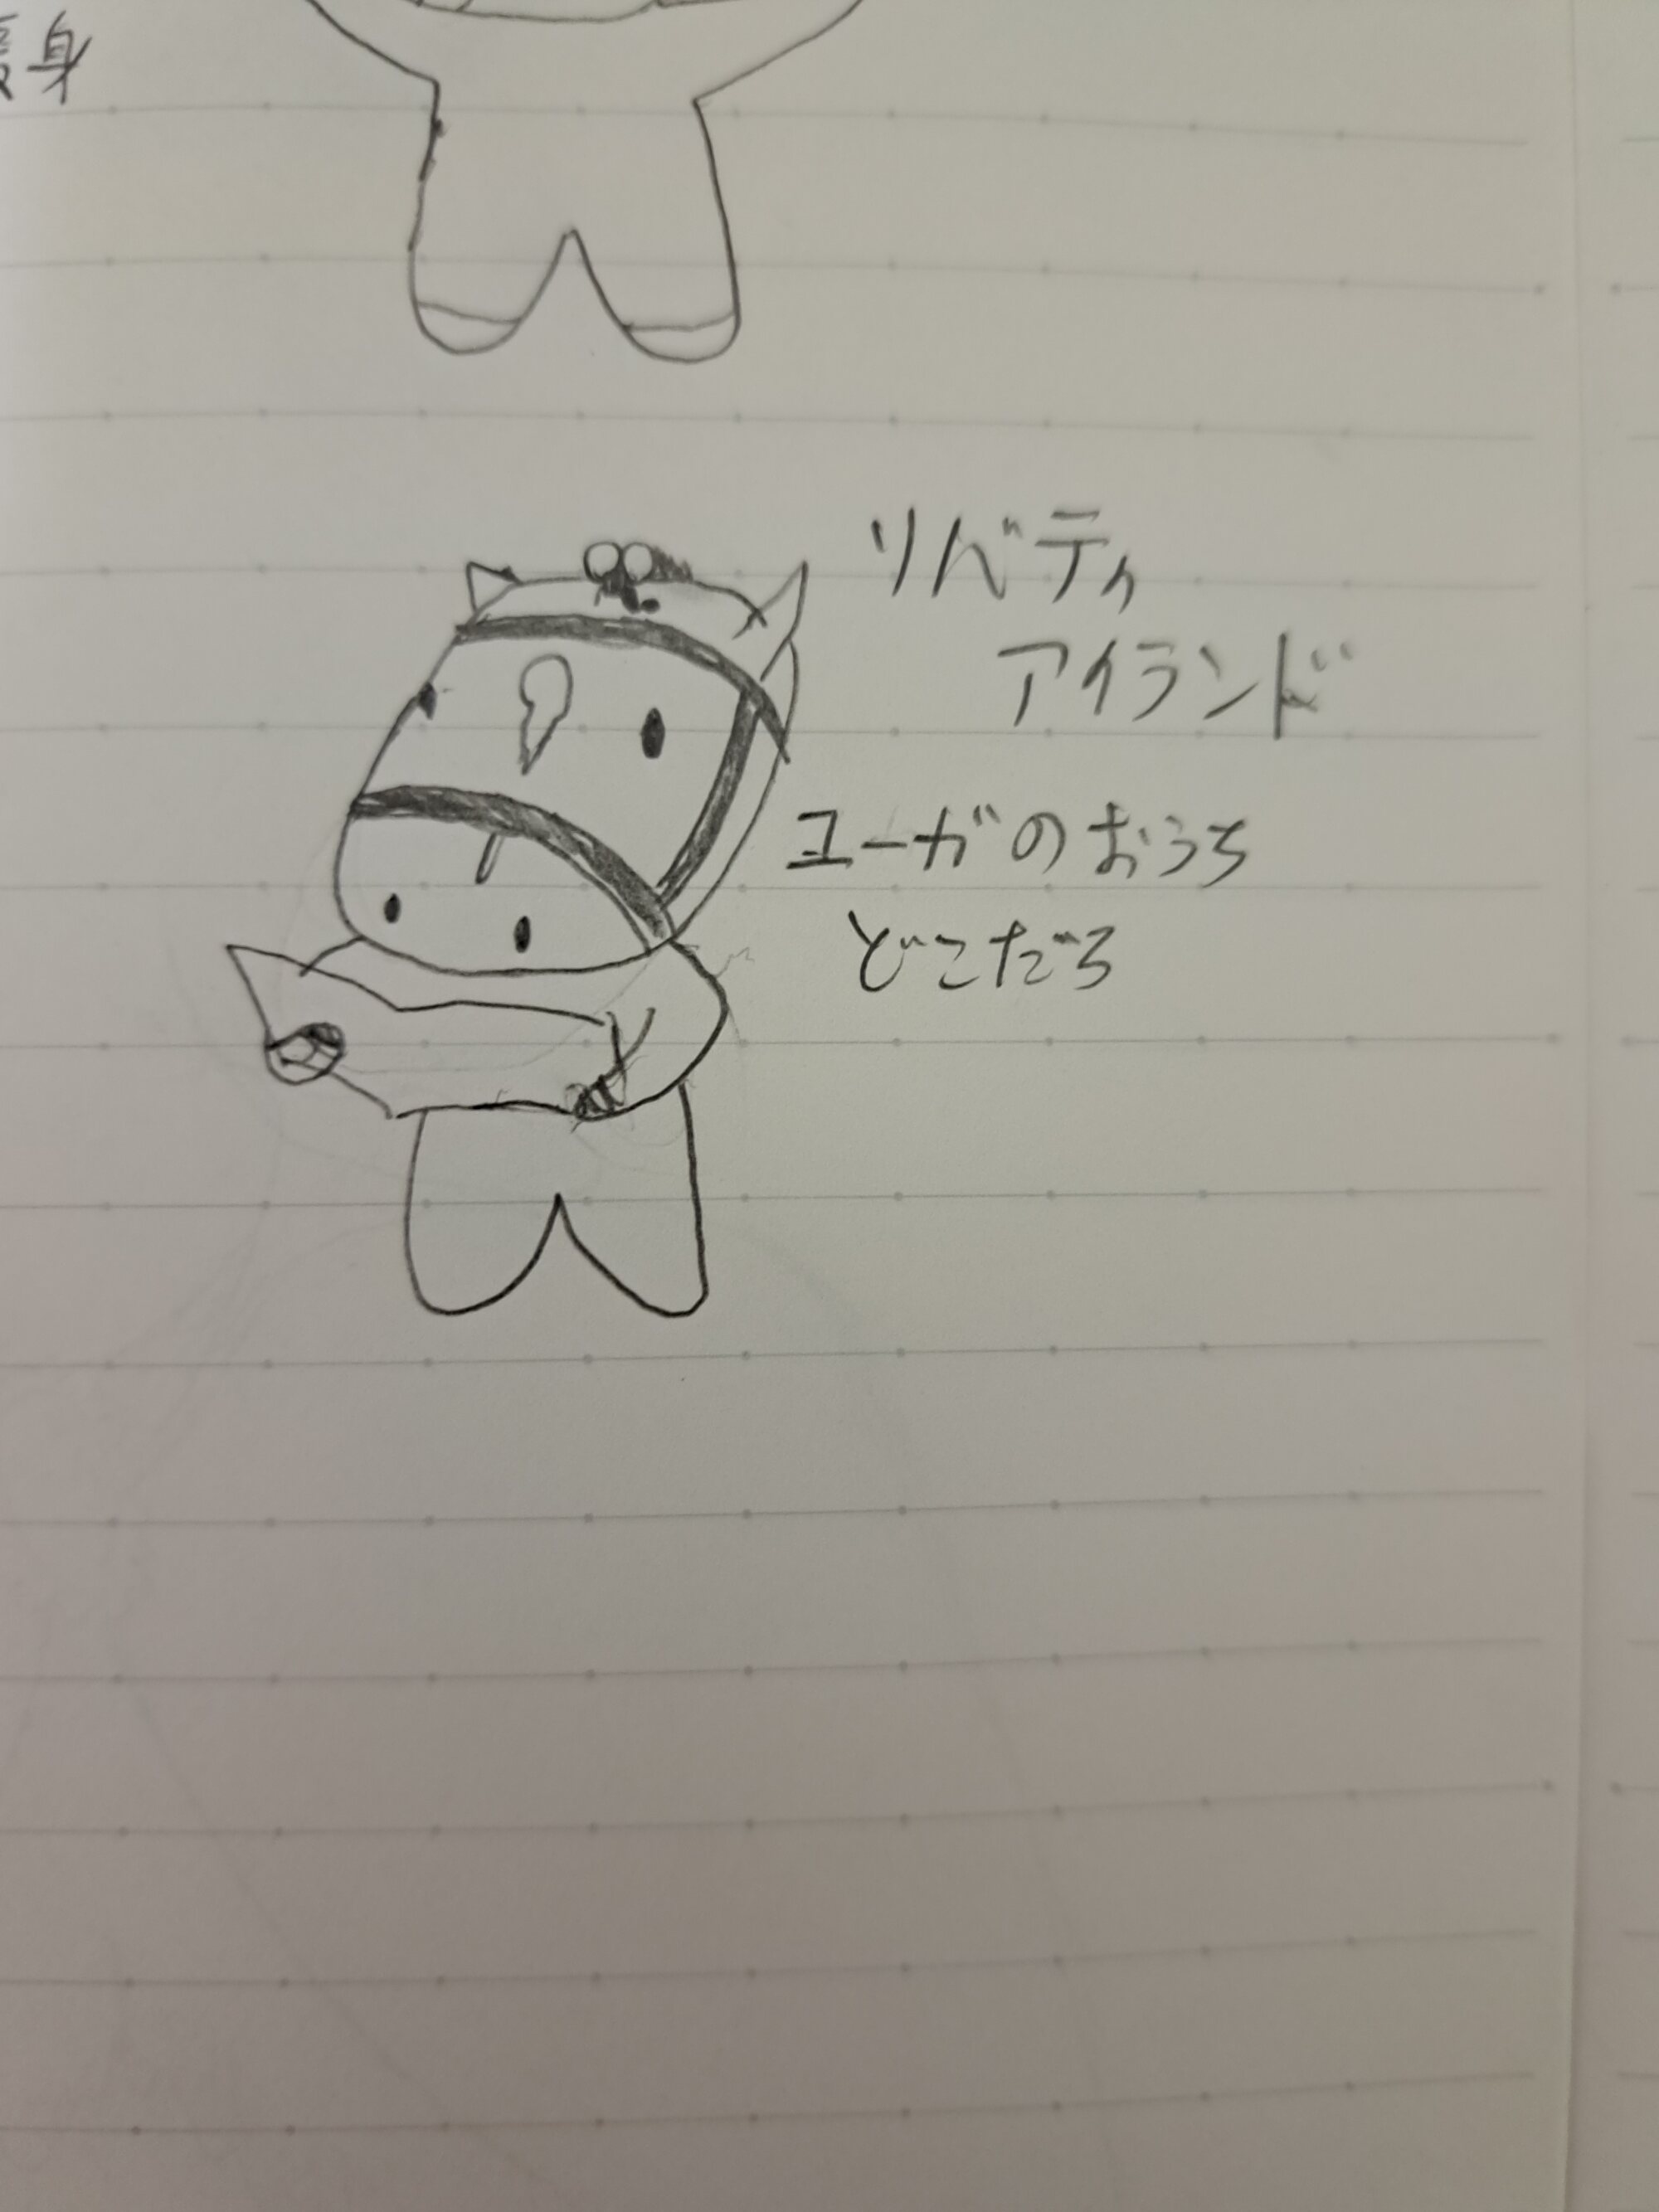 身
リバティ
アイランド
ユーガのおうち
どこだろ